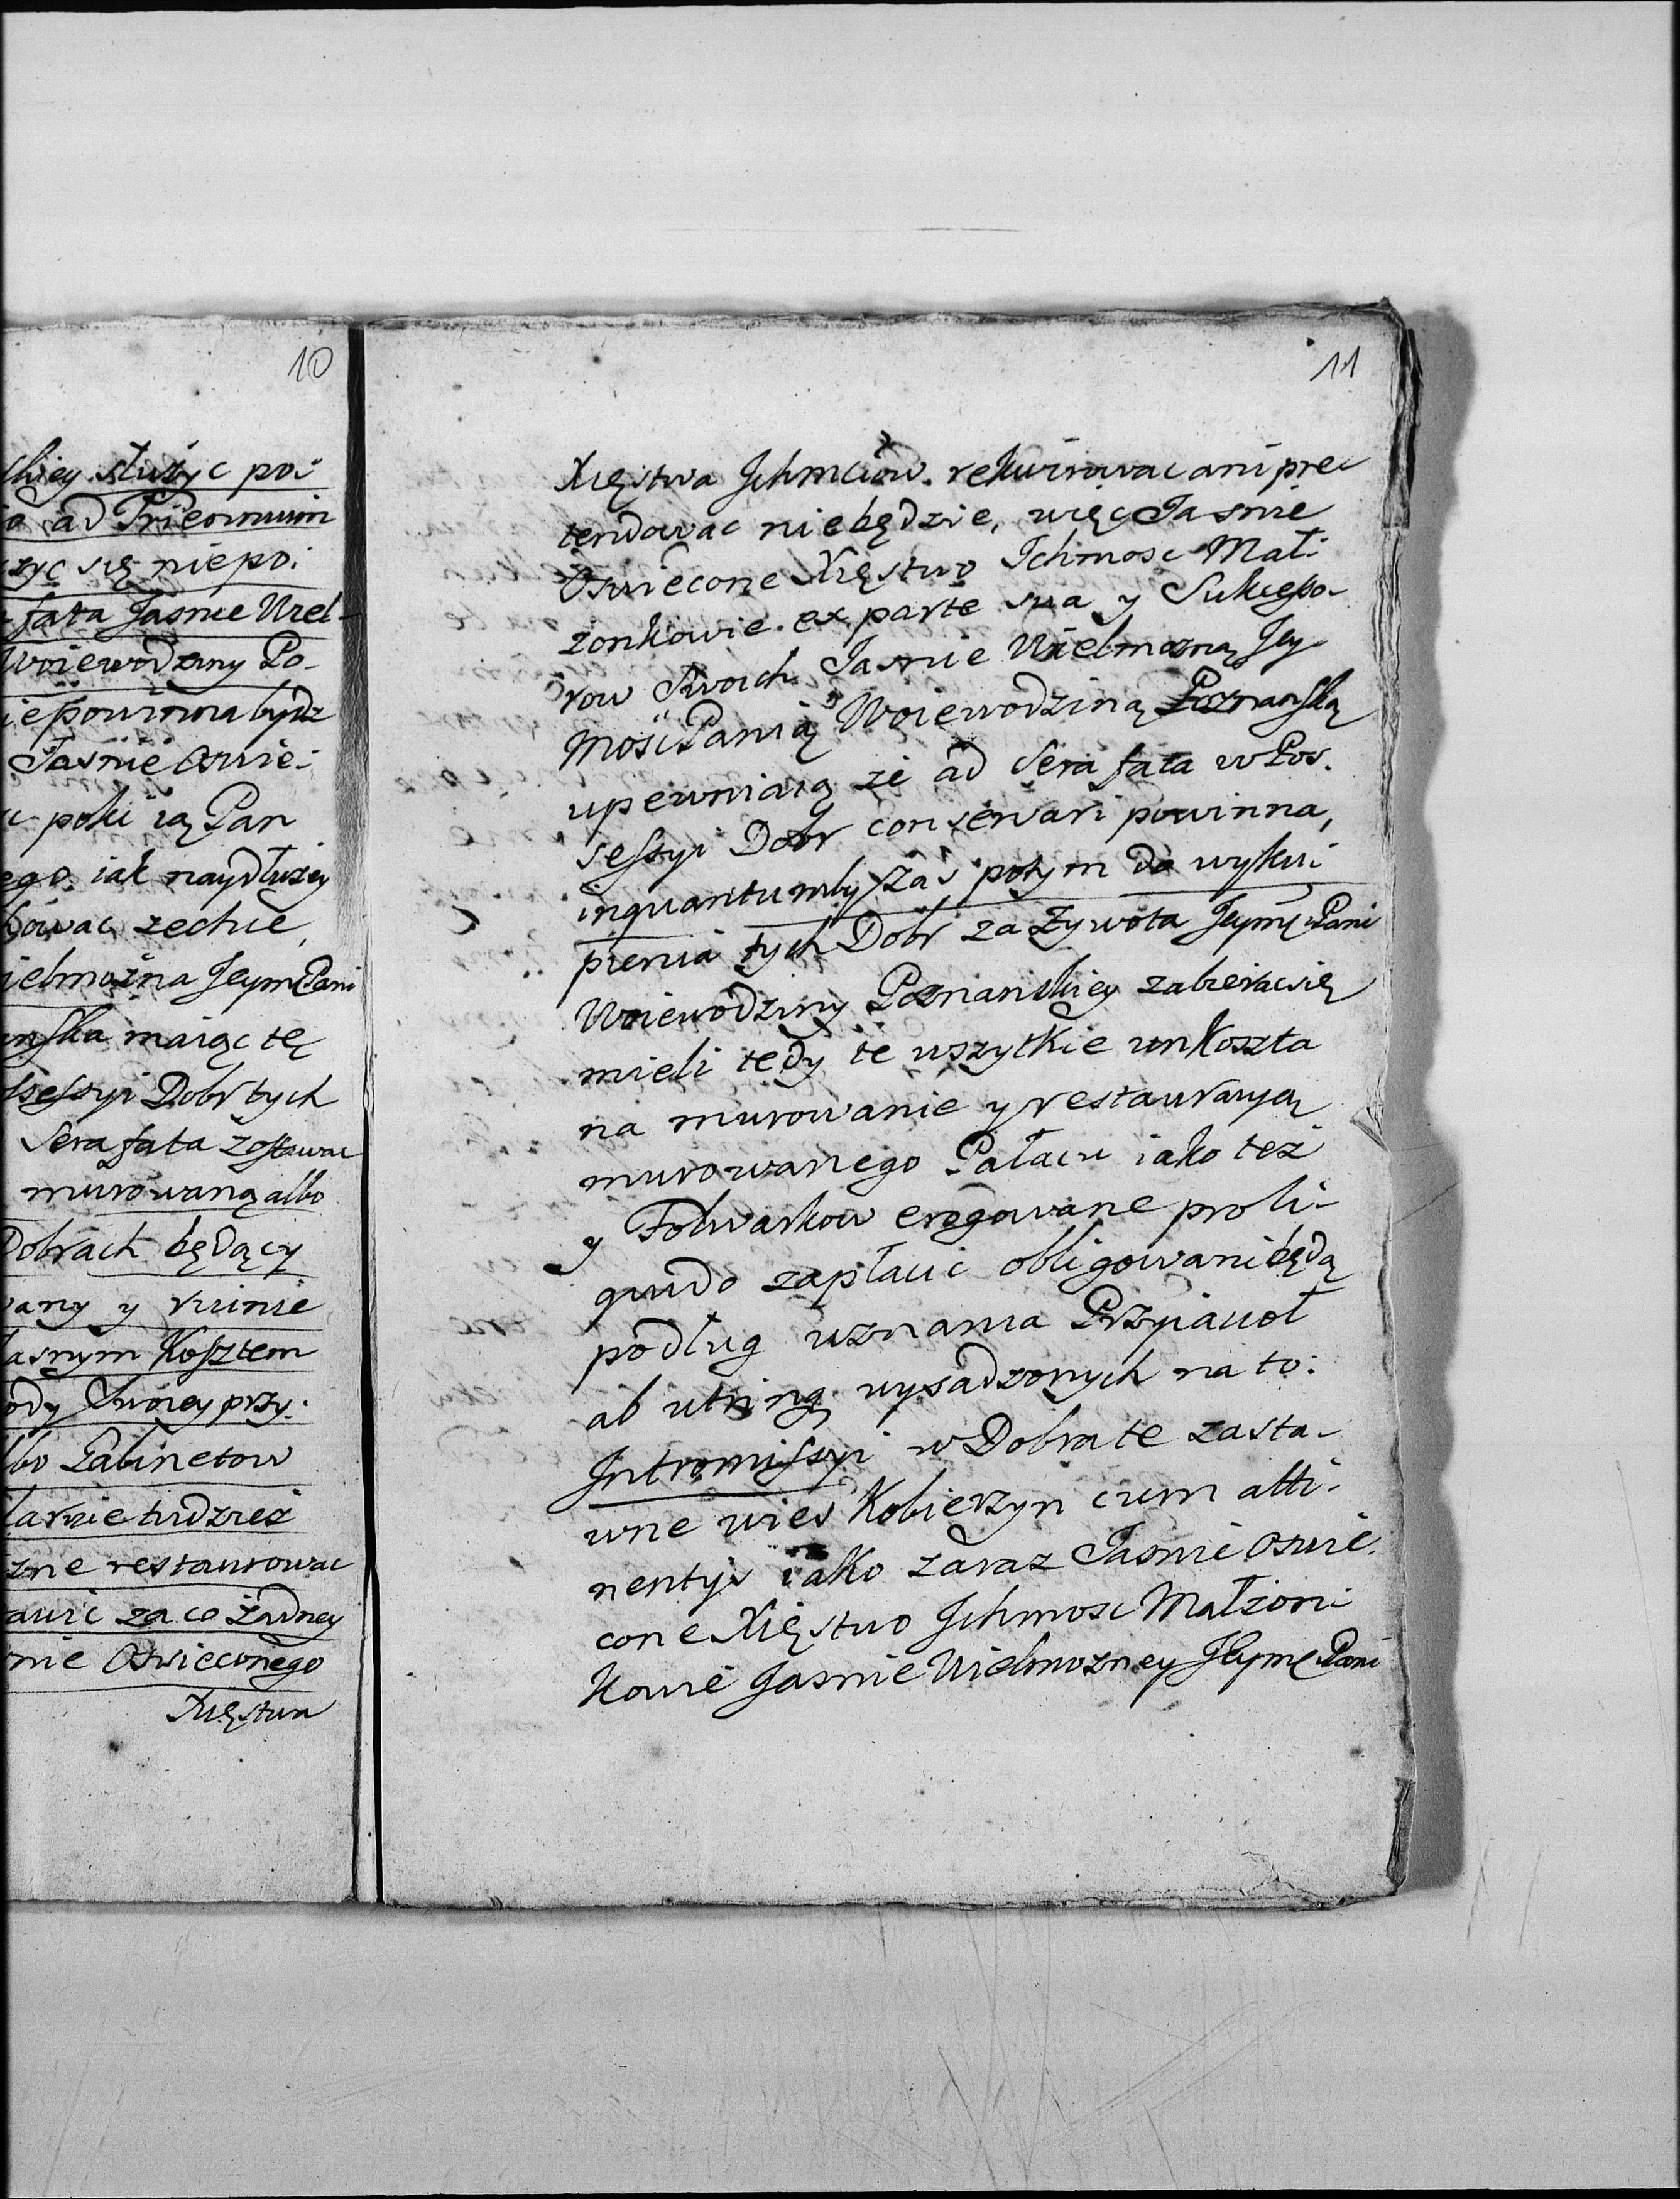 10
skiey służyc poi
ad Trienouium
szyc się niepo:
fata Jasnie Wiel-
Woiewodziny Po-
iepowinna bydz
Jasnie oswie-
poki ią Pan
ego iak naydłużey
bowac zechce,
ielmożna Jeymć Pani
anska maiąc tę
ssessyi Dobr tych
Sera fata zostawac
murowaną albo
Dobrach będący
wany y ruinie
łasnym Kosztem
ody Swoiey przy:
lbo Gabinetow
larnie tudziez
zne restaurowac
awic za co żadney
nie Oswieconego
Xięstwa
11
Xięstwa Jchmciow rekwirowac ani pre-
tendowac niebędzie, więc Jasnie
Oswiecone Xięstwo Ichmosc Mał:
zonkowie ex parte sua y Sukcesso-
row Swoich Jasnie Wielmozną Jey
Mośc Panią Woiewodziną Poznanską
upewniaią że ad Sera fata w Pos.
sessyi Dobr conservari powinna,
inquantumby zas potym do wykui
pienia tych Dobr za Zywota Jeymć Pani
Woiewodziny Poznanskiey zabierac się
mieli tedy te wszytkie unkoszta
na murowanie y restauracyą
murowanego Pałacu iako też
y Folwarkow erogowane pro li-
quido zapłacic obligowani będą
podług uznania Przyiacioł
ab utrinq wysadzonych na to:
Jntromissyi w Dobra te zasta-
wne wies Kobierzyn cum atti-
nentijs iako zaraz Jasnie oswie-
cone Xięstwo Jchmosc Małzon:
kowie Jasnie Wielmozney Jeymć Pani